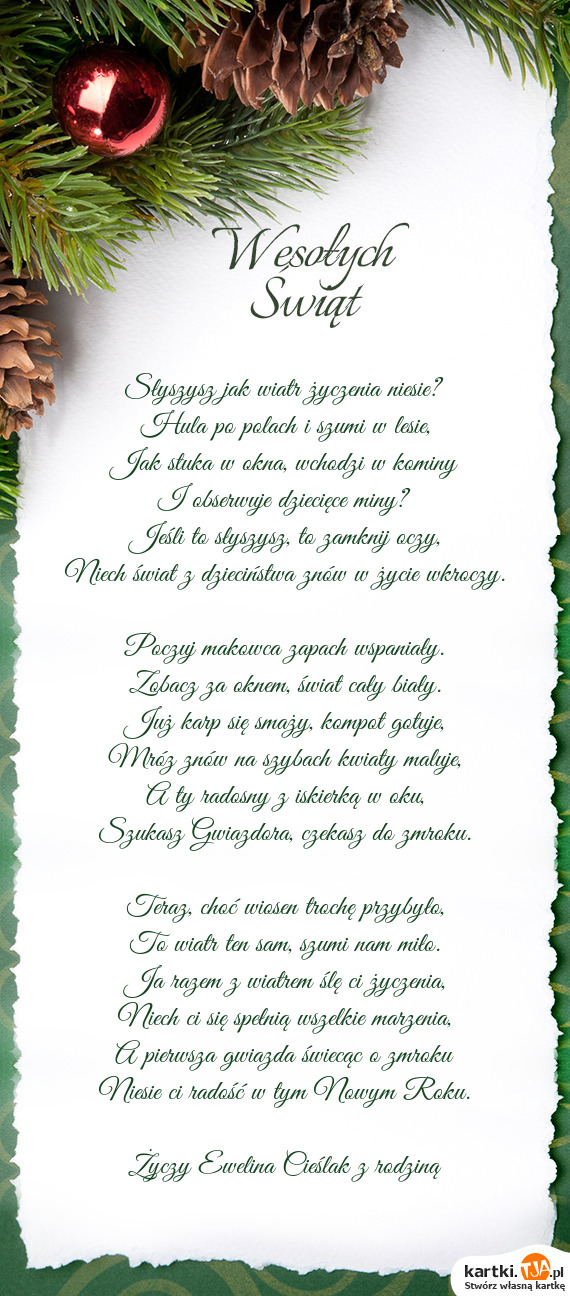 Wesołych
Świąt
Słyszysz jak wiatr życzenia niesie?
Hula po polach i szumi w lesie,
Jak stuka w okna, wchodzi w kominy
I obserwuje dziecięce miny?
Jeśli to słyszysz, to zamknij oczy,
Niech świat z dzieciństwa znów w życie wkroczy.
Poczuj makowca zapach wspaniały.
Zobacz za oknem, świat cały biały.
Już karp się smaży, kompot gotuje,
Mróz znów na szybach kwiaty maluje,
A ty radosny z iskierką w oku,
Szukasz Gwiazdora, czekasz do zmroku.
Teraz, choć wiosen trochę przybyło,
To wiatr ten sam, szumi nam miło.
Ja razem z wiatrem ślę ci życzenia,
Niech ci się spełnią wszelkie marzenia,
A pierwsza gwiazda świecąc o zmroku
Niesie ci radość w tym Nowym Roku.
Życzy Ewelina Cieślak z rodziną
kartki.TJA.pl
Stwórz własną kartkę